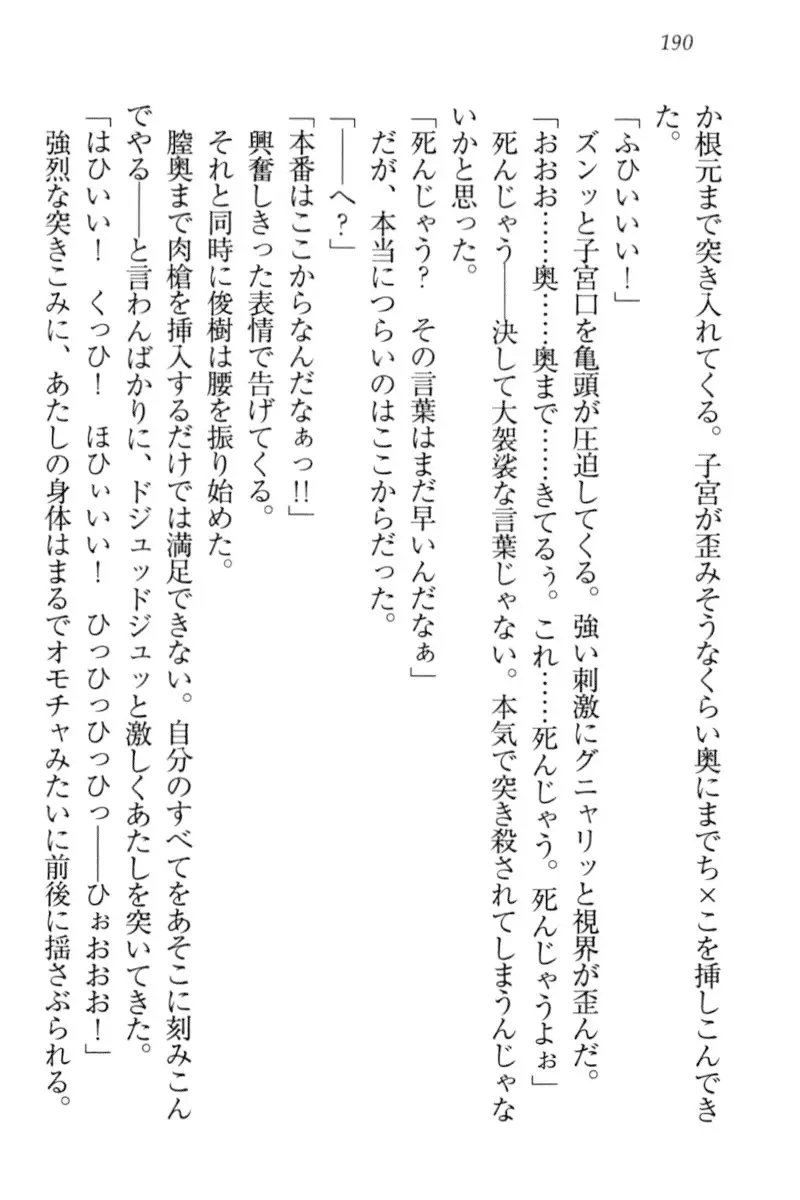 190
か根元まで突き入れてくる。子宮が歪みそうなくらい奥にまでち×こを挿しこんでき
た。
「ふひいいい！」
ズンッと子宮口を亀頭が圧迫してくる。強い刺激にグニャリッと視界が歪んだ。
「おおお……奥……奥まで……きてるぅ。これ……死んじゃう。死んじゃうよぉ」
死んじゃう――決して大袈裟な言葉じゃない。本気で突き殺されてしまうんじゃな
いかと思った。
「死んじゃう？　その言葉はまだ早いんだなぁ」
だが、本当につらいのはここからだった。
「――へ？」
「本番はここからなんだなぁっ!!」
興奮しきった表情で告げてくる。
それと同時に俊樹は腰を振り始めた。
膣奥まで肉槍を挿入するだけでは満足できない。自分のすべてをあそこに刻みこん
でやる――と言わんばかりに、ドジュッドジュッと激しくあたしを突いてきた。
「はひいい！　くっひ！　ほひぃいい！　ひっひっひっひっ――ひぉおおお！」
強烈な突きこみに、あたしの身体はまるでオモチャみたいに前後に揺さぶられる。